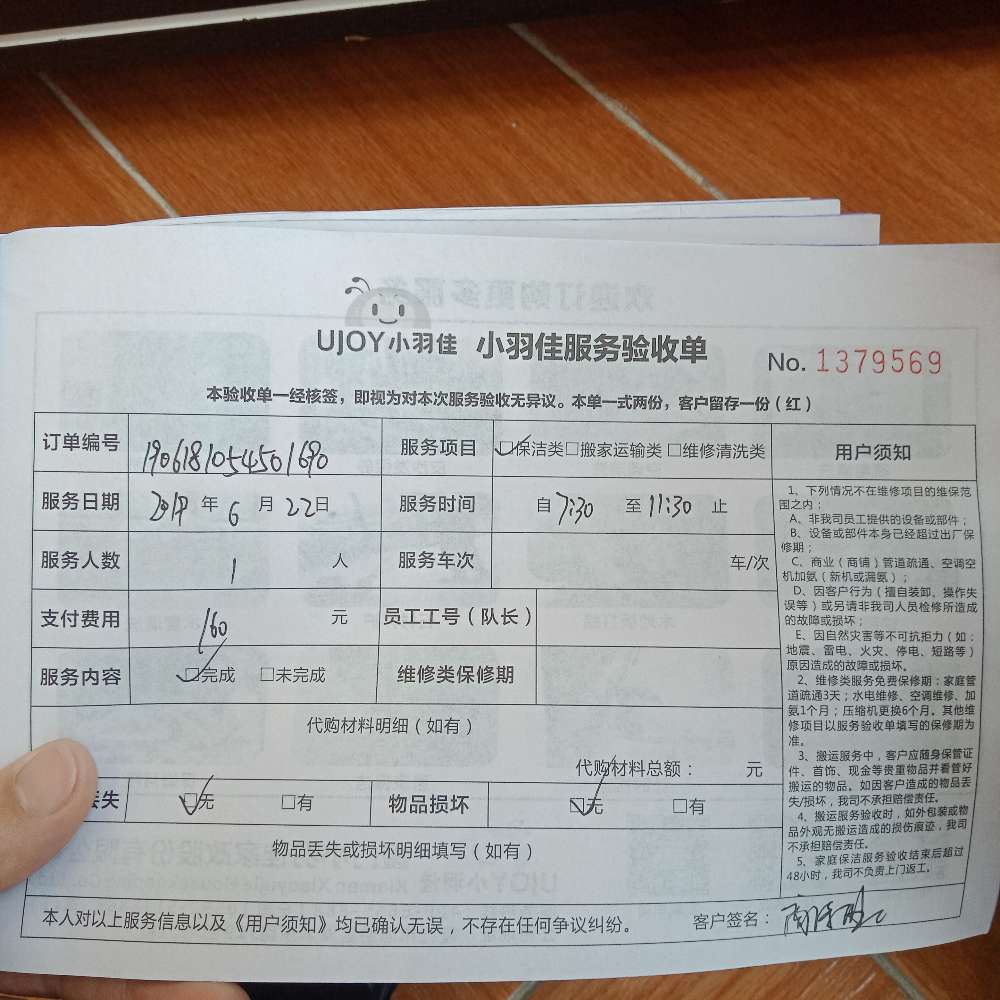 UJOY小羽佳 小羽佳服务验收单 No. 1379569
本验收单一经核签，即视为对本次服务验收无异议。本单一式两份，客户留存一份（红）
订单编号 1906181054501690 服务项目 ☑保洁类□搬家运输类□维修清洗类
服务日期 2019 年 6 月 22日 服务时间 自 7:30 至 11:30 止
服务人数 1 人 服务车次 车/次
支付费用 160 元 员工工号（队长）
服务内容 ☑完成 □未完成 维修类保修期
代购材料明细（如有）
代购材料总额： 元
丢失 ☑无 □有 物品损坏 ☑无 □有
物品丢失或损坏明细填写（如有）
用户须知
1、下列情况不在维修项目的维保范
围之内：
A、非我司员工提供的设备或部件；
B、设备或部件本身已经超过出厂保
修期；
C、商业（商铺）管道疏通、空调空
机加氨（新机或漏氨）；
D、因客户行为（擅自装卸、操作失
误等）或另请非我司人员检修所造成
的故障或损坏；
E、因自然灾害等不可抗拒力（如：
地震、雷电、火灾、停电、短路等）
原因造成的故障或损坏。
2、维修类服务免费保修期：家庭管
道疏通3天；水电维修、空调维修、加
氨1个月；压缩机更换6个月。其他维
修项目以服务验收单填写的保修期为
准。
3、搬运服务中，客户应随身保管证
件、首饰、现金等贵重物品并看管好
搬运的物品。如因客户造成的物品丢
失/损坏，我司不承担赔偿责任。
4、搬运服务验收时，如外包装或物
品外观无搬运造成的损伤痕迹，我司
不承担赔偿责任。
5、家庭保洁服务验收结束后超过
48小时，我司不负责上门返工。
本人对以上服务信息以及《用户须知》均已确认无误，不存在任何争议纠纷。 客户签名：